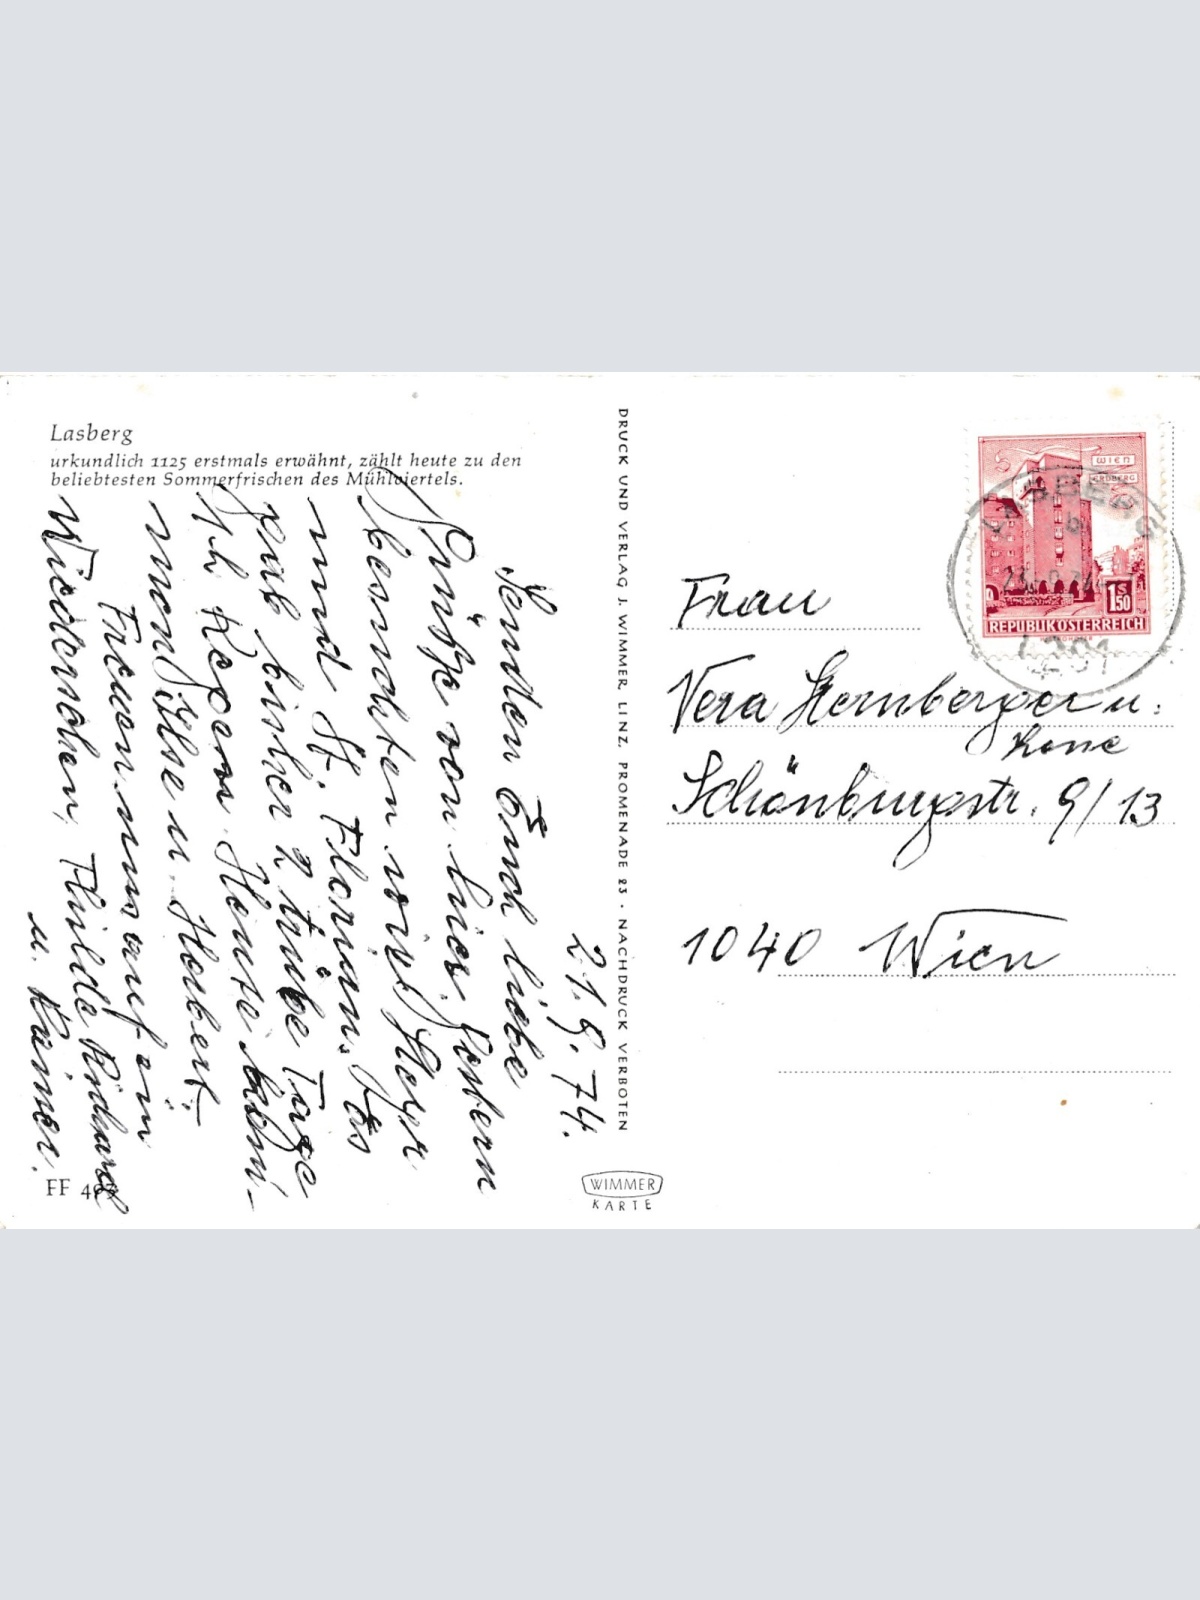 Lasberg
urkundlich 1125 erstmals erwähnt, zählt heute zu den
beliebtesten Sommerfrischen des Mühlviertels.
21.8.74.
Senden Euch liebe
Grüße von hier. Gestern
besuchten wir Steyr
und St. Florian. Es
gab bisher 2 trübe Tage
Heute
Ilse u. Herbert.
Freuen uns auf ein
Wiedersehen, Thilde Richard
u. Rainer.
FF 467
DRUCK UND VERLAG J. WIMMER, LINZ, PROMENADE 23 · NACHDRUCK VERBOTEN
WIMMER
KARTE
WIEN
ERDBERG
1S50
REPUBLIK ÖSTERREICH
LASBERG
4291
Frau
Vera Sternberger u.
René
Schönburgstr. 9/13
1040 Wien